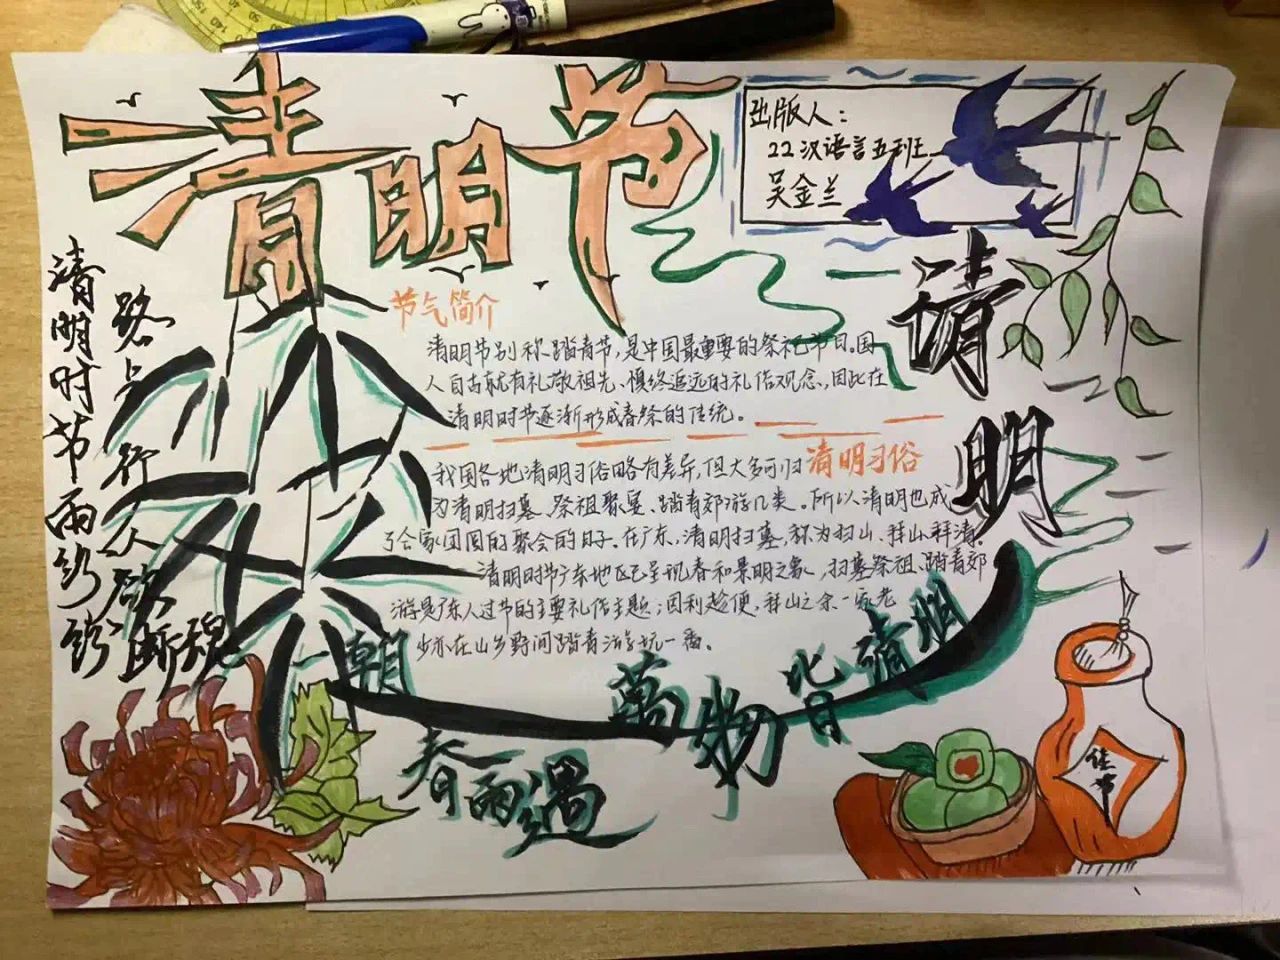 清明节
出版人：
22汉语言五班
吴金兰
清明时节雨纷纷
路上行人欲断魂
节气简介
清明节别称踏青节，是中国最重要的祭祀节日。国
人自古就有礼敬祖先、慎终追远的礼俗观念，因此在
清明时节逐渐形成春祭的传统。
清明习俗
我国各地清明习俗略有差异，但大多可归
为清明扫墓、祭祖聚宴、踏青郊游几类。所以清明也成
了合家团圆的聚会的日子。在广东，清明扫墓，称为扫山、拜山、拜清。
清明时节广东地区已呈现春和景明之象，扫墓祭祖、踏青郊
游是广东人过节的主要礼俗主题；因利趁便，拜山之余，一家老
少亦在山乡野间踏青游玩一番。
清明
朝
春雨過
萬物皆清明
佳节